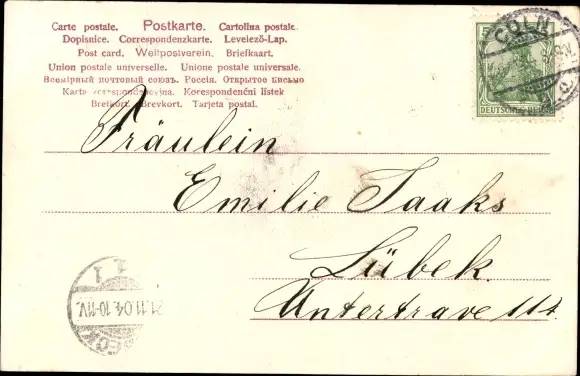 Carte postale. Postkarte. Cartolina postale.
Dopisnice. Correspondenzkarte. Levelező-Lap.
Post card. Weltpostverein. Briefkaart.
Union postale universelle. Unione postale universale.
Всемірный почтовый союзъ. Россія. Открытое письмо
Karta korespondencyjna. Korespondenční lístek
Brefkort. Brevkort. Tarjeta postal.
CÖLN
DEUTSCHES REICH
Fräulein
Emilie Saaks
Lübek.
Untertrave 114
21.11.04.10-11V.